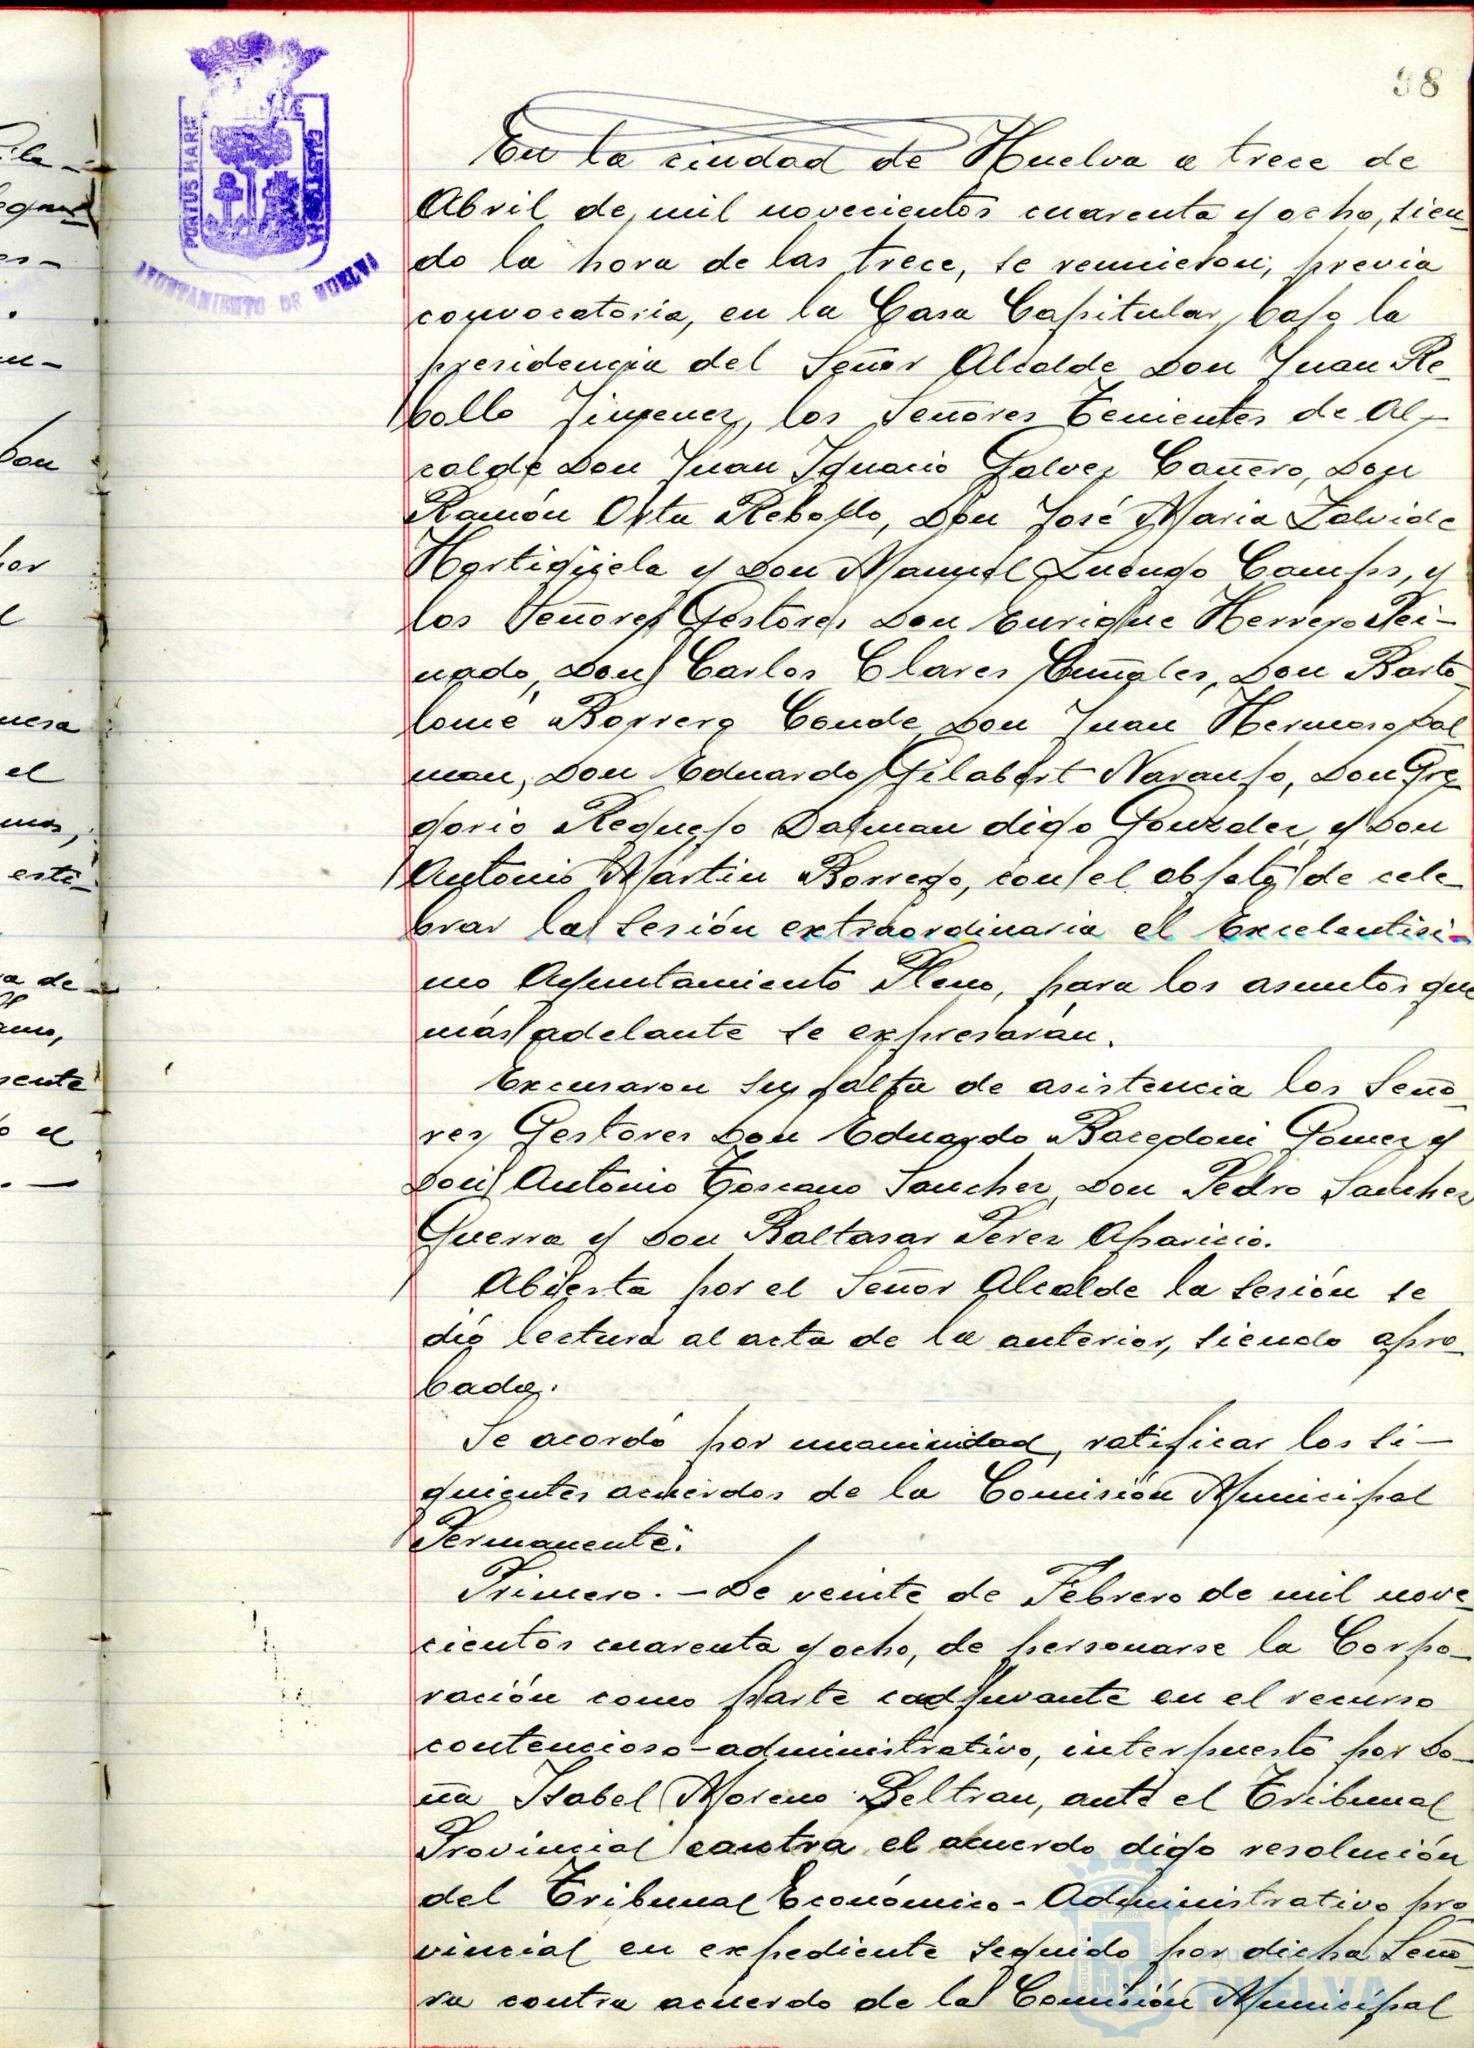 98
PORTUS MARIS
AYUNTAMIENTO DE HUELVA
En la ciudad de Huelva a trece de
Abril de mil novecientos cuarenta y ocho, sien-
do la hora de las trece, se reunieron, previa
convocatoria, en la Casa Capitular, bajo la
presidencia del Señor Alcalde Don Juan Re-
bollo Jimenez, los Señores Tenientes de Al-
calde Don Juan Ignacio Galvez Cañero, Don
Ramón Orta Rebollo, Don José Maria Zalvide
Hortigüela y Don Manuel Luengo Camps, y
los Señores Gestores Don Enrique Herrero Pei-
nado, Don Carlos Clares Don Barto-
lomé Borrero Conde, Don Juan Hermoso Dal
man, Don Eduardo Gilabert Naranjo, Don Gre
gorio Requejo Dalman digo Gonzalez, y Don
Antonio Martin Borrego, con el objeto de cele-
brar la sesión extraordinaria el Excelentisi-
mo Ayuntamiento Pleno, para los asuntos que
más adelante se expresarán.
Excusaron su falta de asistencia los Seño-
res Gestores Don Eduardo Gomez y
Don Antonio Toscano Sanchez, Don Pedro Sanchez
Guerra y Don Baltasar Perez Aparicio.
Abierta por el Señor Alcalde la sesión se
dió lectura al acta de la anterior, siendo apro-
bada.
Se acordó por unanimidad, ratificar los si-
guientes acuerdos de la Comisión Municipal
Permanente:
Primero.- De veinte de Febrero de mil nove-
cientos cuarenta y ocho, de personarse la Corpo-
ración como parte coadjuvante en el recurso
contencioso-administrativo, interpuesto por Do-
ña Isabel Moreno Beltran, ante el Tribunal
Provincial contra el acuerdo digo resolución
del Tribunal Económico-Administrativo pro
vincial en expediente seguido por dicha Seño-
ra contra acuerdo de la Comisión Municipal
HUELVA